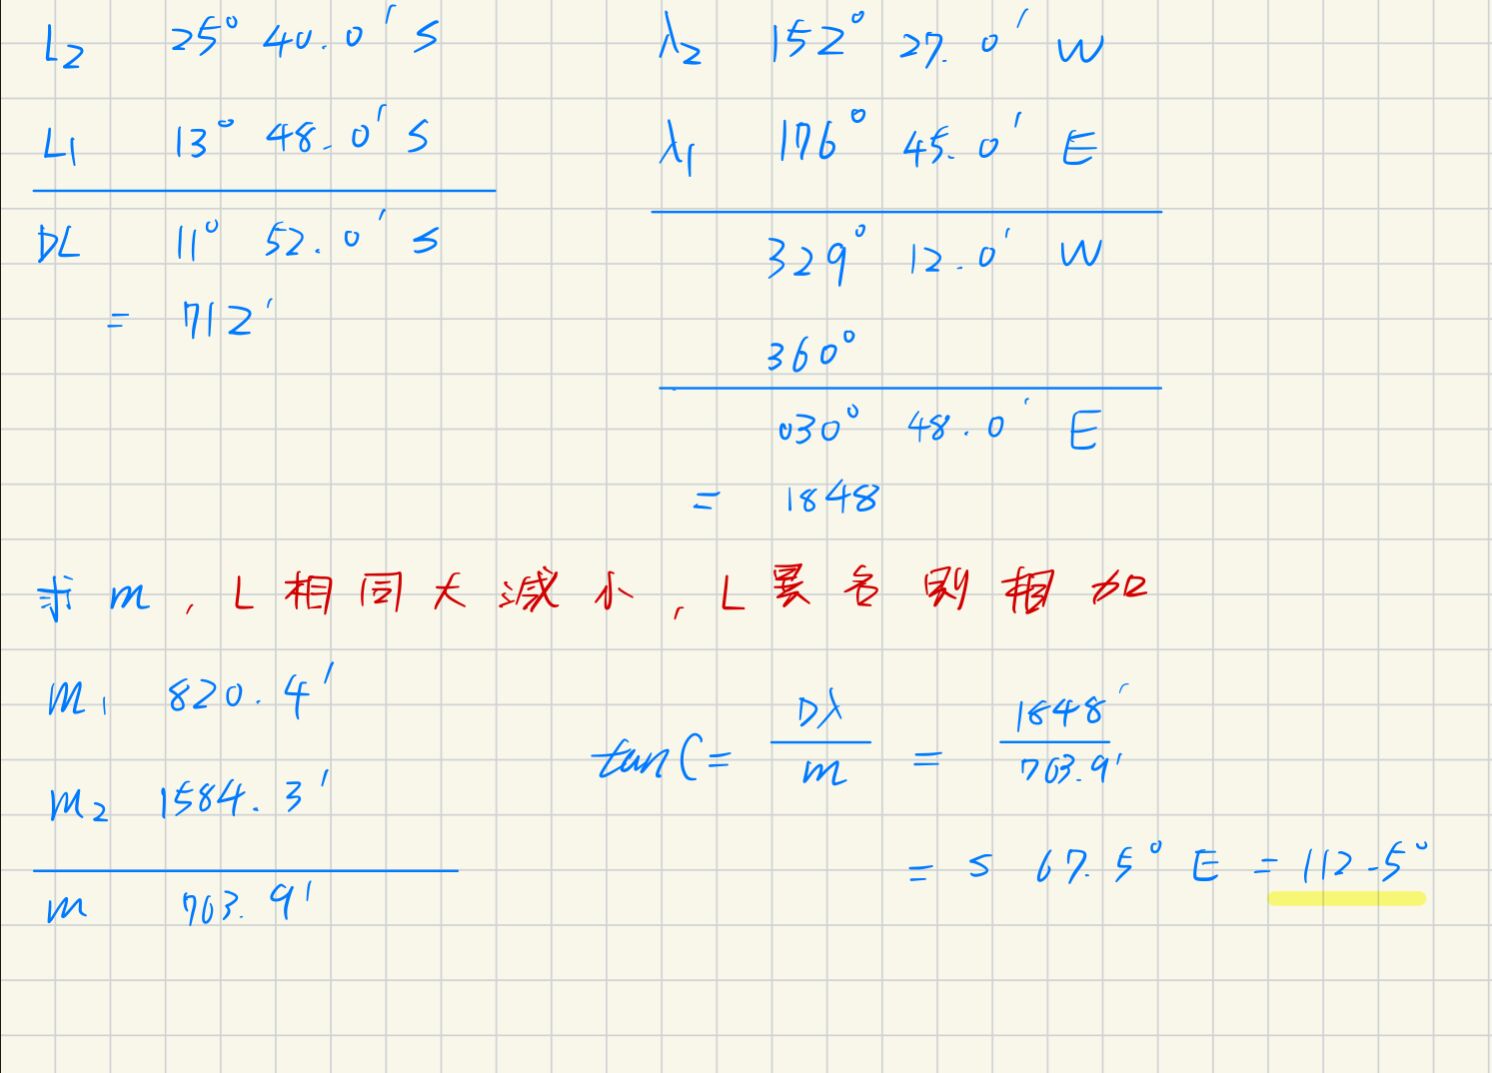 L2 25° 40.0' S
L1 13° 48.0' S
DL 11° 52.0' S
= 712'
λ2 152° 27.0' W
λ1 176° 45.0' E
329° 12.0' W
360°
030° 48.0' E
= 1848
求 m , L 相同大減小 , L 異名則相加
m1 820.4'
m2 1584.3'
m 703.9'
tan C = Dλ / m = 1848' / 703.9'
= S 67.5° E = 112.5°